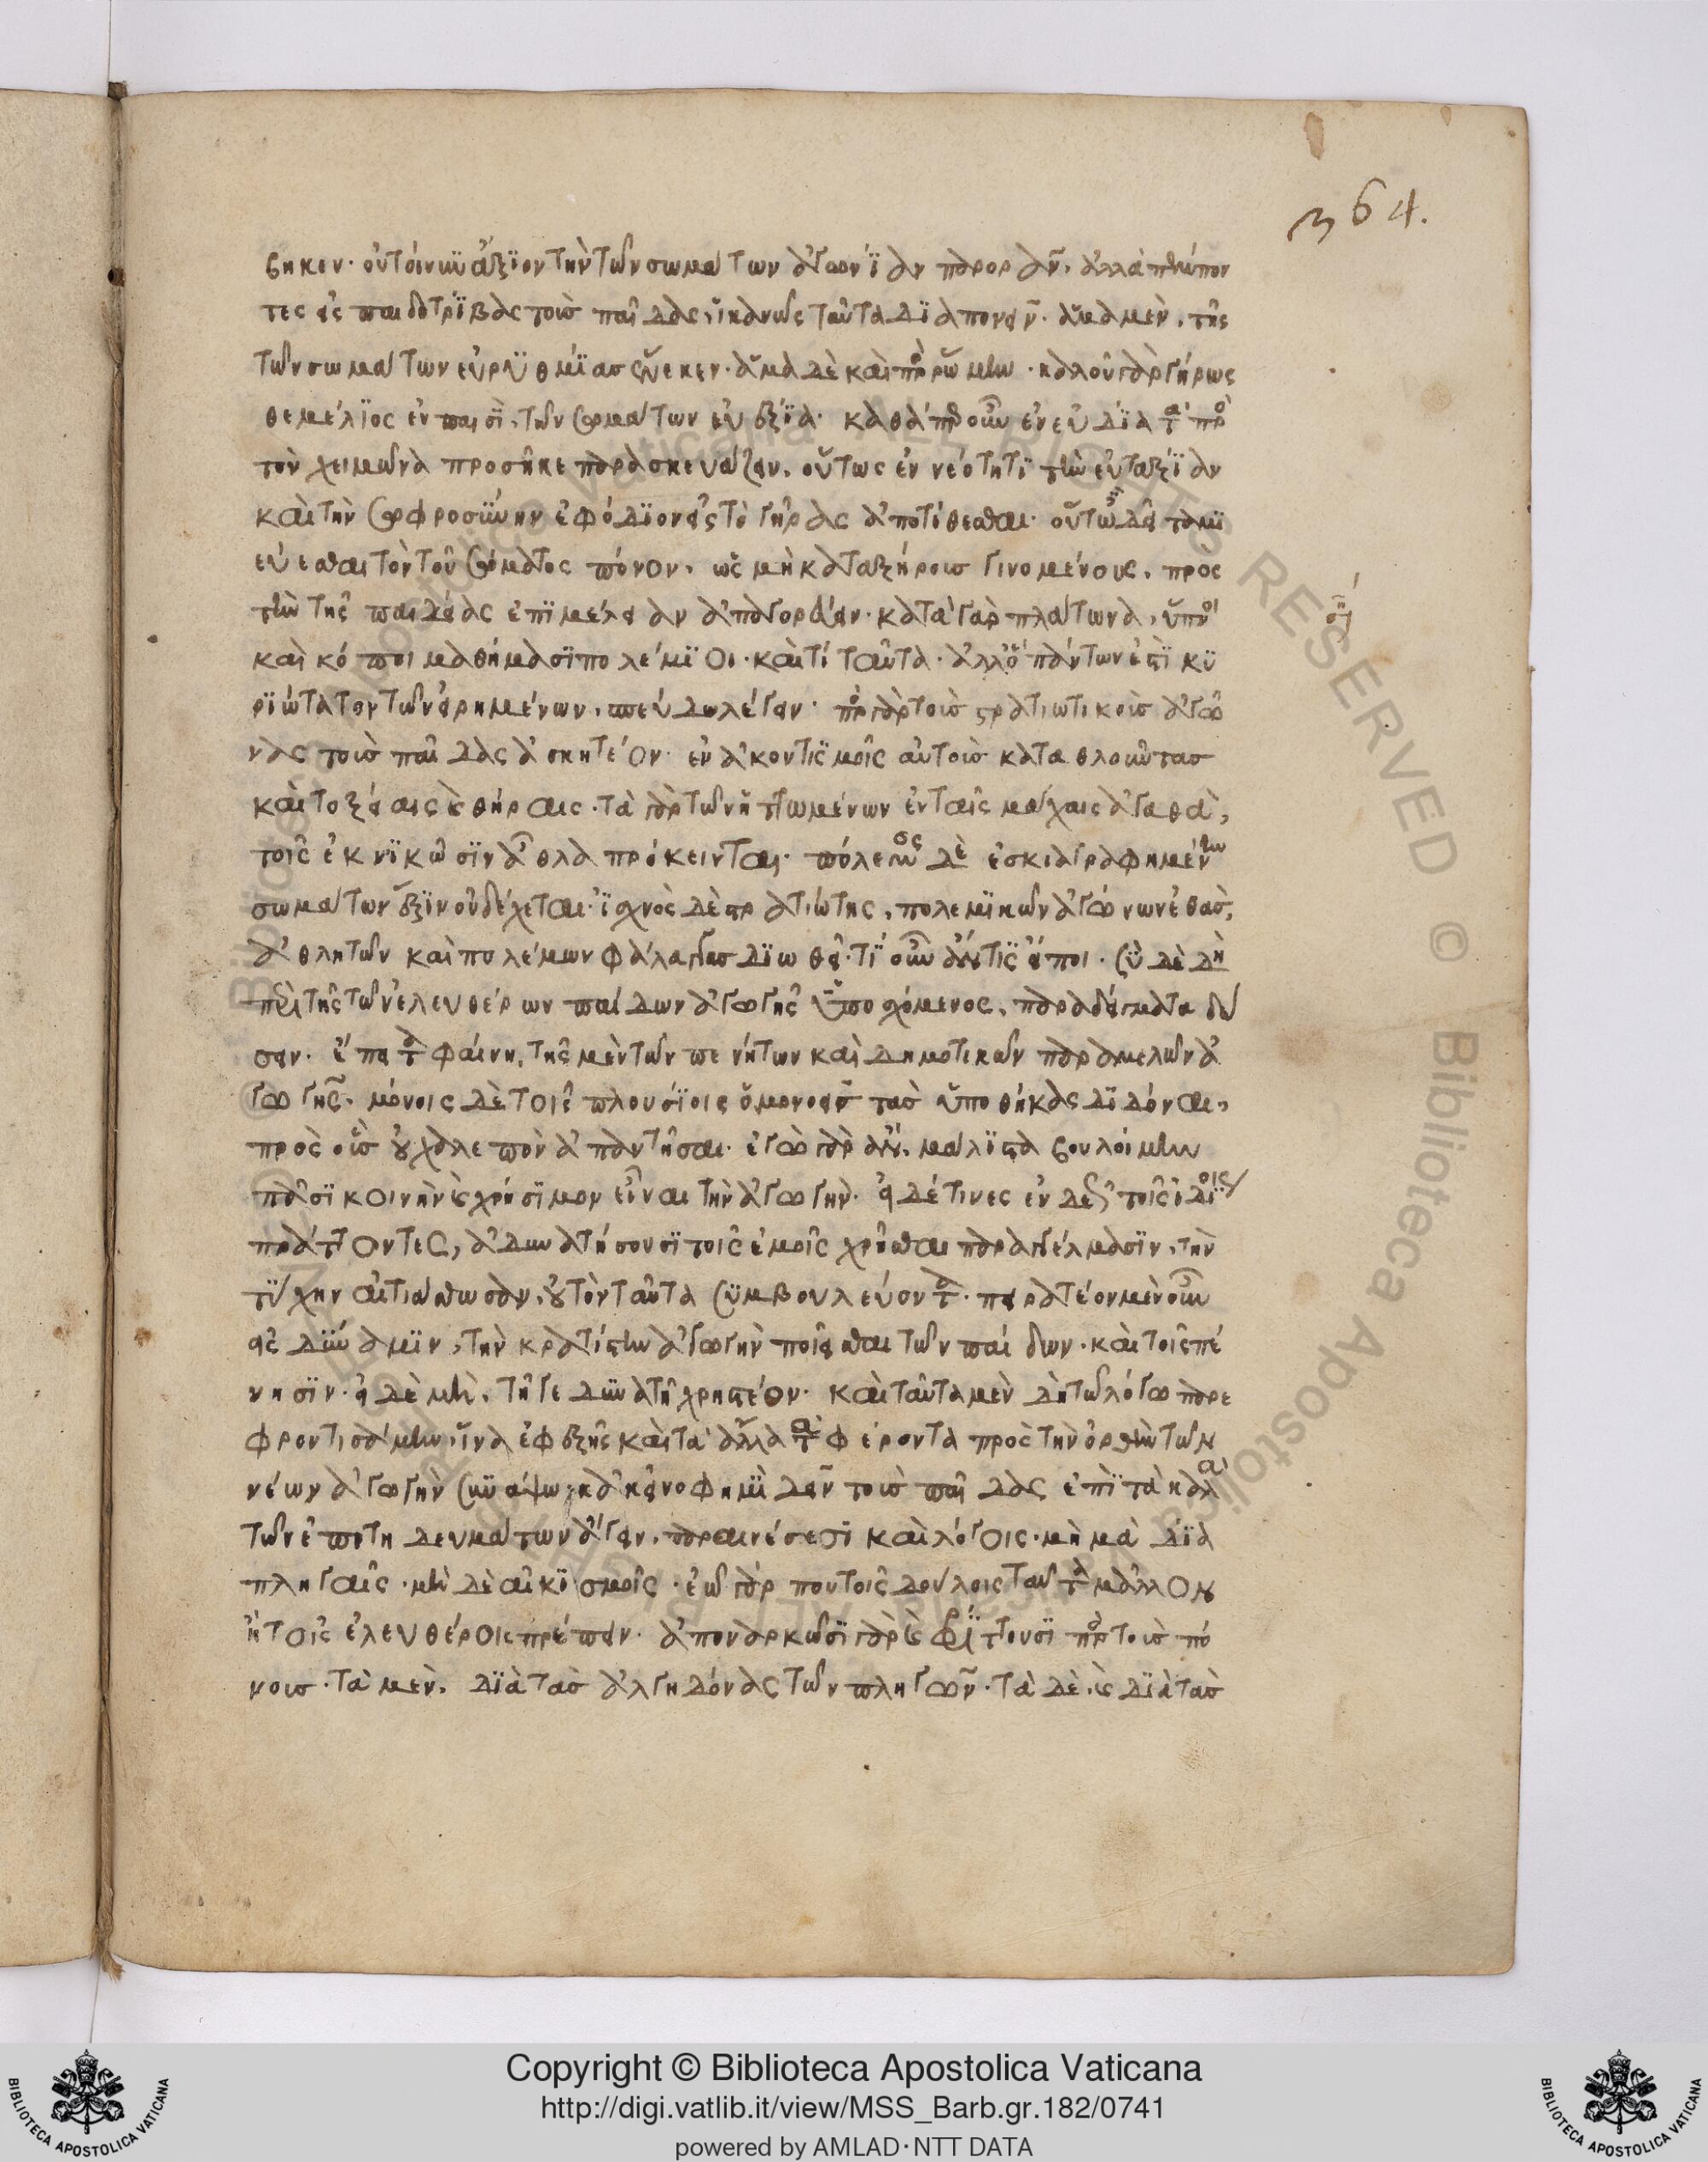 364.
βηκεν· οὐ τοίνυν ἄξιον τὴν τῶν σωμάτων ἀγωνίαν παρορᾶν, ἀλλὰ πέμπον
τες εἰς παιδοτρίβας τοὺς παῖδας, ἱκανῶς ταῦτα διαπονεῖν· ἅμα μὲν, τῆς
τῶν σωμάτων εὐρυθμίας ἕνεκεν· ἅμα δὲ καὶ πρὸς ῥώμην· καλοῦ γὰρ γήρως
θεμέλιος ἐν παισὶ, τῶν σωμάτων εὐεξία· καθάπερ οὖν ἐν εὐδία τὰ πρὸς
τὸν χειμῶνα προσῆκε παρασκευάζειν, οὕτως ἐν νεότητι τὴν εὐταξίαν
καὶ τὴν σωφροσύνην ἐφόδιον εἰς τὸ γῆρας ἀποτίθεσθαι· οὕτω δεῖ ταμι
εύεσθαι τὸν τοῦ σώματος πόνον, ὡς μὴ καταξήρους γινομένους, πρὸς
τὴν τῆς παιδείας ἐπιμέλειαν ἀπαγορεύειν· κατὰ γὰρ πλάτωνα, ὕπνοι
καὶ κόποι μαθήμασι πολέμιοι· καὶ τί ταῦτα· ἀλλ' ὃ πάντων ἐστὶ κυ
ριώτατον τῶν εἰρημένων, σπεύδω λέγειν· πρὸς γὰρ τοὺς στρατιωτικοὺς ἀγῶ
νας τοὺς παῖδας ἀσκητέον· ἐν ἀκοντισμοῖς αὐτοὺς καταθλοῦντας
καὶ τοξείαις καὶ θήραις· τὰ γὰρ τῶν ἡττωμένων ἐν ταῖς μάχαις ἀγαθὰ,
τοῖς ἐκνικῶσιν ἆθλα πρόκεινται· πόλεμος δὲ ἐσκιαγραφημένην
σωμάτων ἕξιν οὐ δέχεται· ἰσχνὸς δὲ στρατιώτης, πολεμικῶν ἀγώνων ἐθὰς,
ἀθλητῶν καὶ πολέμων φάλαγγας διωθεῖ· τί οὖν ἄν τις εἴποι· σὺ δὲ δὴ
περὶ τῆς τῶν ἐλευθέρων παίδων ἀγωγῆς ὑποσχόμενος, παραδείγματα δώ
σειν· ἔπειτα φαίνῃ, τῆς μὲν τῶν πενήτων καὶ δημοτικῶν παραμελῶν ἀ
γωγῆς, μόνοις δὲ τοῖς πλουσίοις ὁμονοεῖς τὰς ὑποθήκας διδόναι,
πρὸς οὓς οὐ χαλεπὸν ἀπαντῆσαι· ἐγὼ γὰρ ἂν, μάλιστα βουλοίμην
πᾶσι κοινὴν καὶ χρήσιμον εἶναι τὴν ἀγωγήν· εἰ δέ τινες ἐνδεῶς τοῖς ἰδίοις
πράττοντες, ἀδυνατήσουσι τοῖς ἐμοῖς χρῆσθαι παραγγέλμασιν, τὴν
τύχην αἰτιάσθωσαν, οὐ τὸν ταῦτα συμβουλεύοντα· πειρατέον μὲν οὖν
εἰς δύναμιν, τὴν κρατίστην ἀγωγὴν ποιεῖσθαι τῶν παίδων· καὶ τοῖς πέ
νησιν· εἰ δὲ μὴ, τῇ γε δυνατῇ χρηστέον· καὶ ταῦτα μὲν δὴ τῷ λόγω παρε
φροντισάμην, ἵν' ἐφεξῆς καὶ τὰ ἄλλα τὰ φέροντα πρὸς τὴν ὀρθὴν τῶν
νέων ἀγωγὴν συνάψω· κἀκεῖνο φημὶ δεῖν τοὺς παῖδας ἐπὶ τὰ καλὰ
τῶν ἐπιτηδευμάτων ἄγειν, παραινέσεσι καὶ λόγοις· μὴ μὰ δία
πληγαῖς· μὴ δὲ αἰκισμοῖς· ἐῶ γάρ που τοῖς δούλοις ταῦτα μᾶλλον
ἢ τοῖς ἐλευθέροις πρέπειν· ἀποναρκῶσι γὰρ καὶ φρίττουσι πρὸς τοὺς πό
νους· τὰ μὲν, διὰ τὰς ἀλγηδόνας τῶν πληγῶν· τὰ δὲ, καὶ διὰ τὰς
Copyright © Biblioteca Apostolica Vaticana
http://digi.vatlib.it/view/MSS_Barb.gr.182/0741
powered by AMLAD·NTT DATA